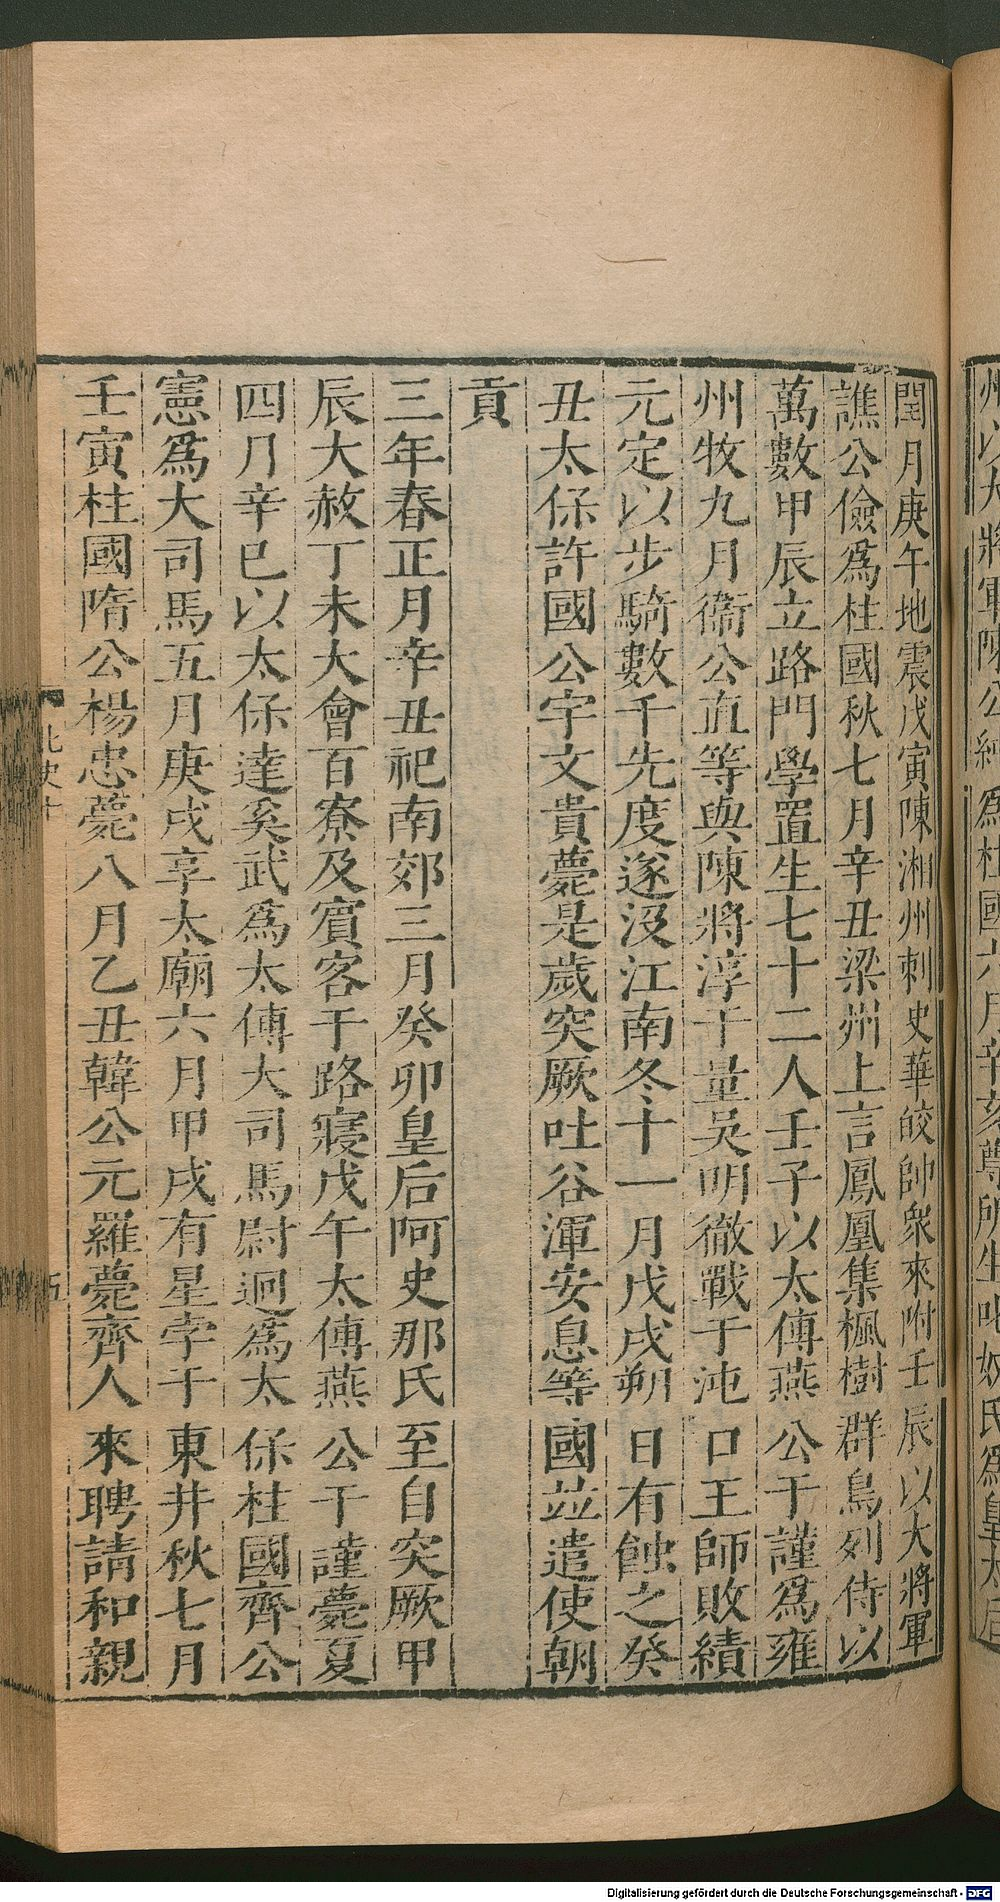 州以大將軍陳公純爲柱國六月辛亥尊所生叱奴氏爲皇太后
閏月庚午地震戊寅陳湘州刺史華皎帥衆來附壬辰以大將軍
譙公儉爲柱國秋七月辛丑梁州上言鳳凰集楓樹群鳥列侍以
萬數甲辰立路門學置生七十二人壬子以太傅燕公于謹爲雍
州牧九月衞公直等與陳將淳于量吳明徹戰于沌口王師敗績
元定以步騎數千先度遂没江南冬十一月戊戌朔日有蝕之癸
丑太保許國公宇文貴薨是歲突厥吐谷渾安息等國並遣使朝
貢
三年春正月辛丑祀南郊三月癸卯皇后阿史那氏至自突厥甲
辰大赦丁未大會百寮及賓客于路寢戊午太傅燕公于謹薨夏
四月辛巳以太保達奚武爲太傅大司馬尉迥爲太保柱國齊公
憲爲大司馬五月庚戌享太廟六月甲戌有星孛于東井秋七月
壬寅柱國隋公楊忠薨八月乙丑韓公元羅薨齊人來聘請和親
北史十
Digitalisierung gefördert durch die Deutsche Forschungsgemeinschaft - DFG